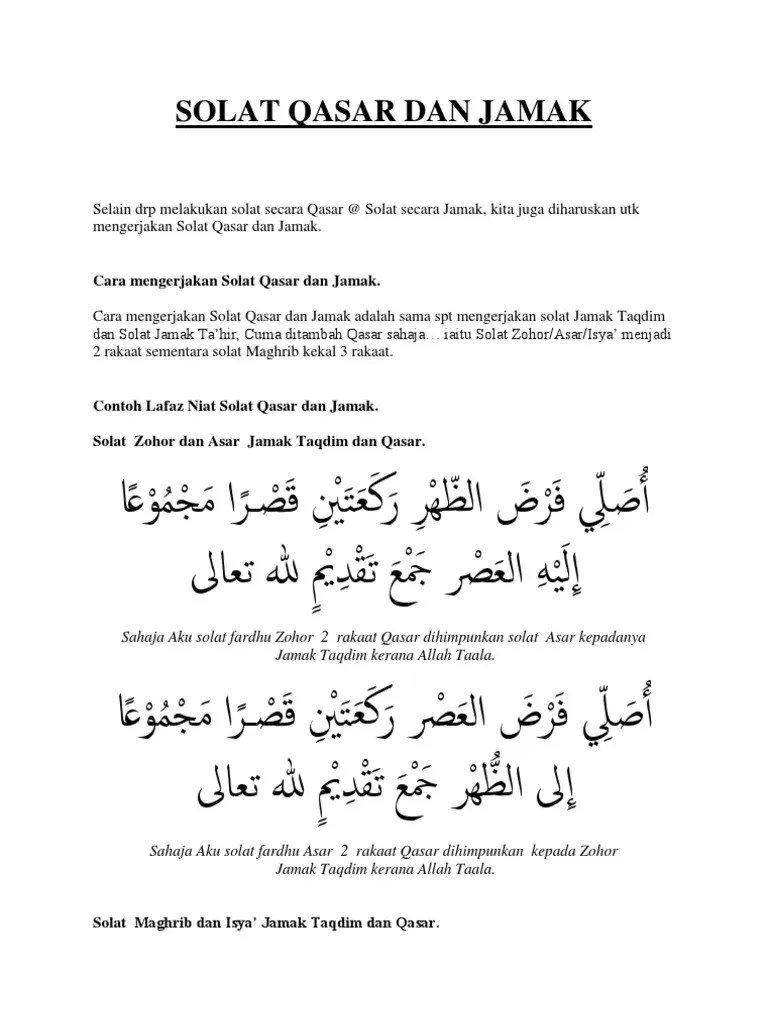 SOLAT QASAR DAN JAMAK
Selain drp melakukan solat secara Qasar @ Solat secara Jamak, kita juga diharuskan utk
mengerjakan Solat Qasar dan Jamak.
Cara mengerjakan Solat Qasar dan Jamak.
Cara mengerjakan Solat Qasar dan Jamak adalah sama spt mengerjakan solat Jamak Taqdim
dan Solat Jamak Ta’hir, Cuma ditambah Qasar sahaja… iaitu Solat Zohor/Asar/Isya’ menjadi
2 rakaat sementara solat Maghrib kekal 3 rakaat.
Contoh Lafaz Niat Solat Qasar dan Jamak.
Solat Zohor dan Asar Jamak Taqdim dan Qasar.
أُصَلِّي فَرْضَ الظُّهْرِ رَكَعَتَيْنِ قَصْرًا مَجْمُوْعًا
إِلَيْهِ العَصْر جَمْعَ تَقْدِيْمٍ لله تعالى
Sahaja Aku solat fardhu Zohor 2 rakaat Qasar dihimpunkan solat Asar kepadanya
Jamak Taqdim kerana Allah Taala.
أُصَلِّي فَرْضَ العَصْر رَكَعَتَيْنِ قَصْرًا مَجْمُوْعًا
إِلى الظُّهْر جَمْعَ تَقْدِيْمٍ لله تعالى
Sahaja Aku solat fardhu Asar 2 rakaat Qasar dihimpunkan kepada Zohor
Jamak Taqdim kerana Allah Taala.
Solat Maghrib dan Isya’ Jamak Taqdim dan Qasar.